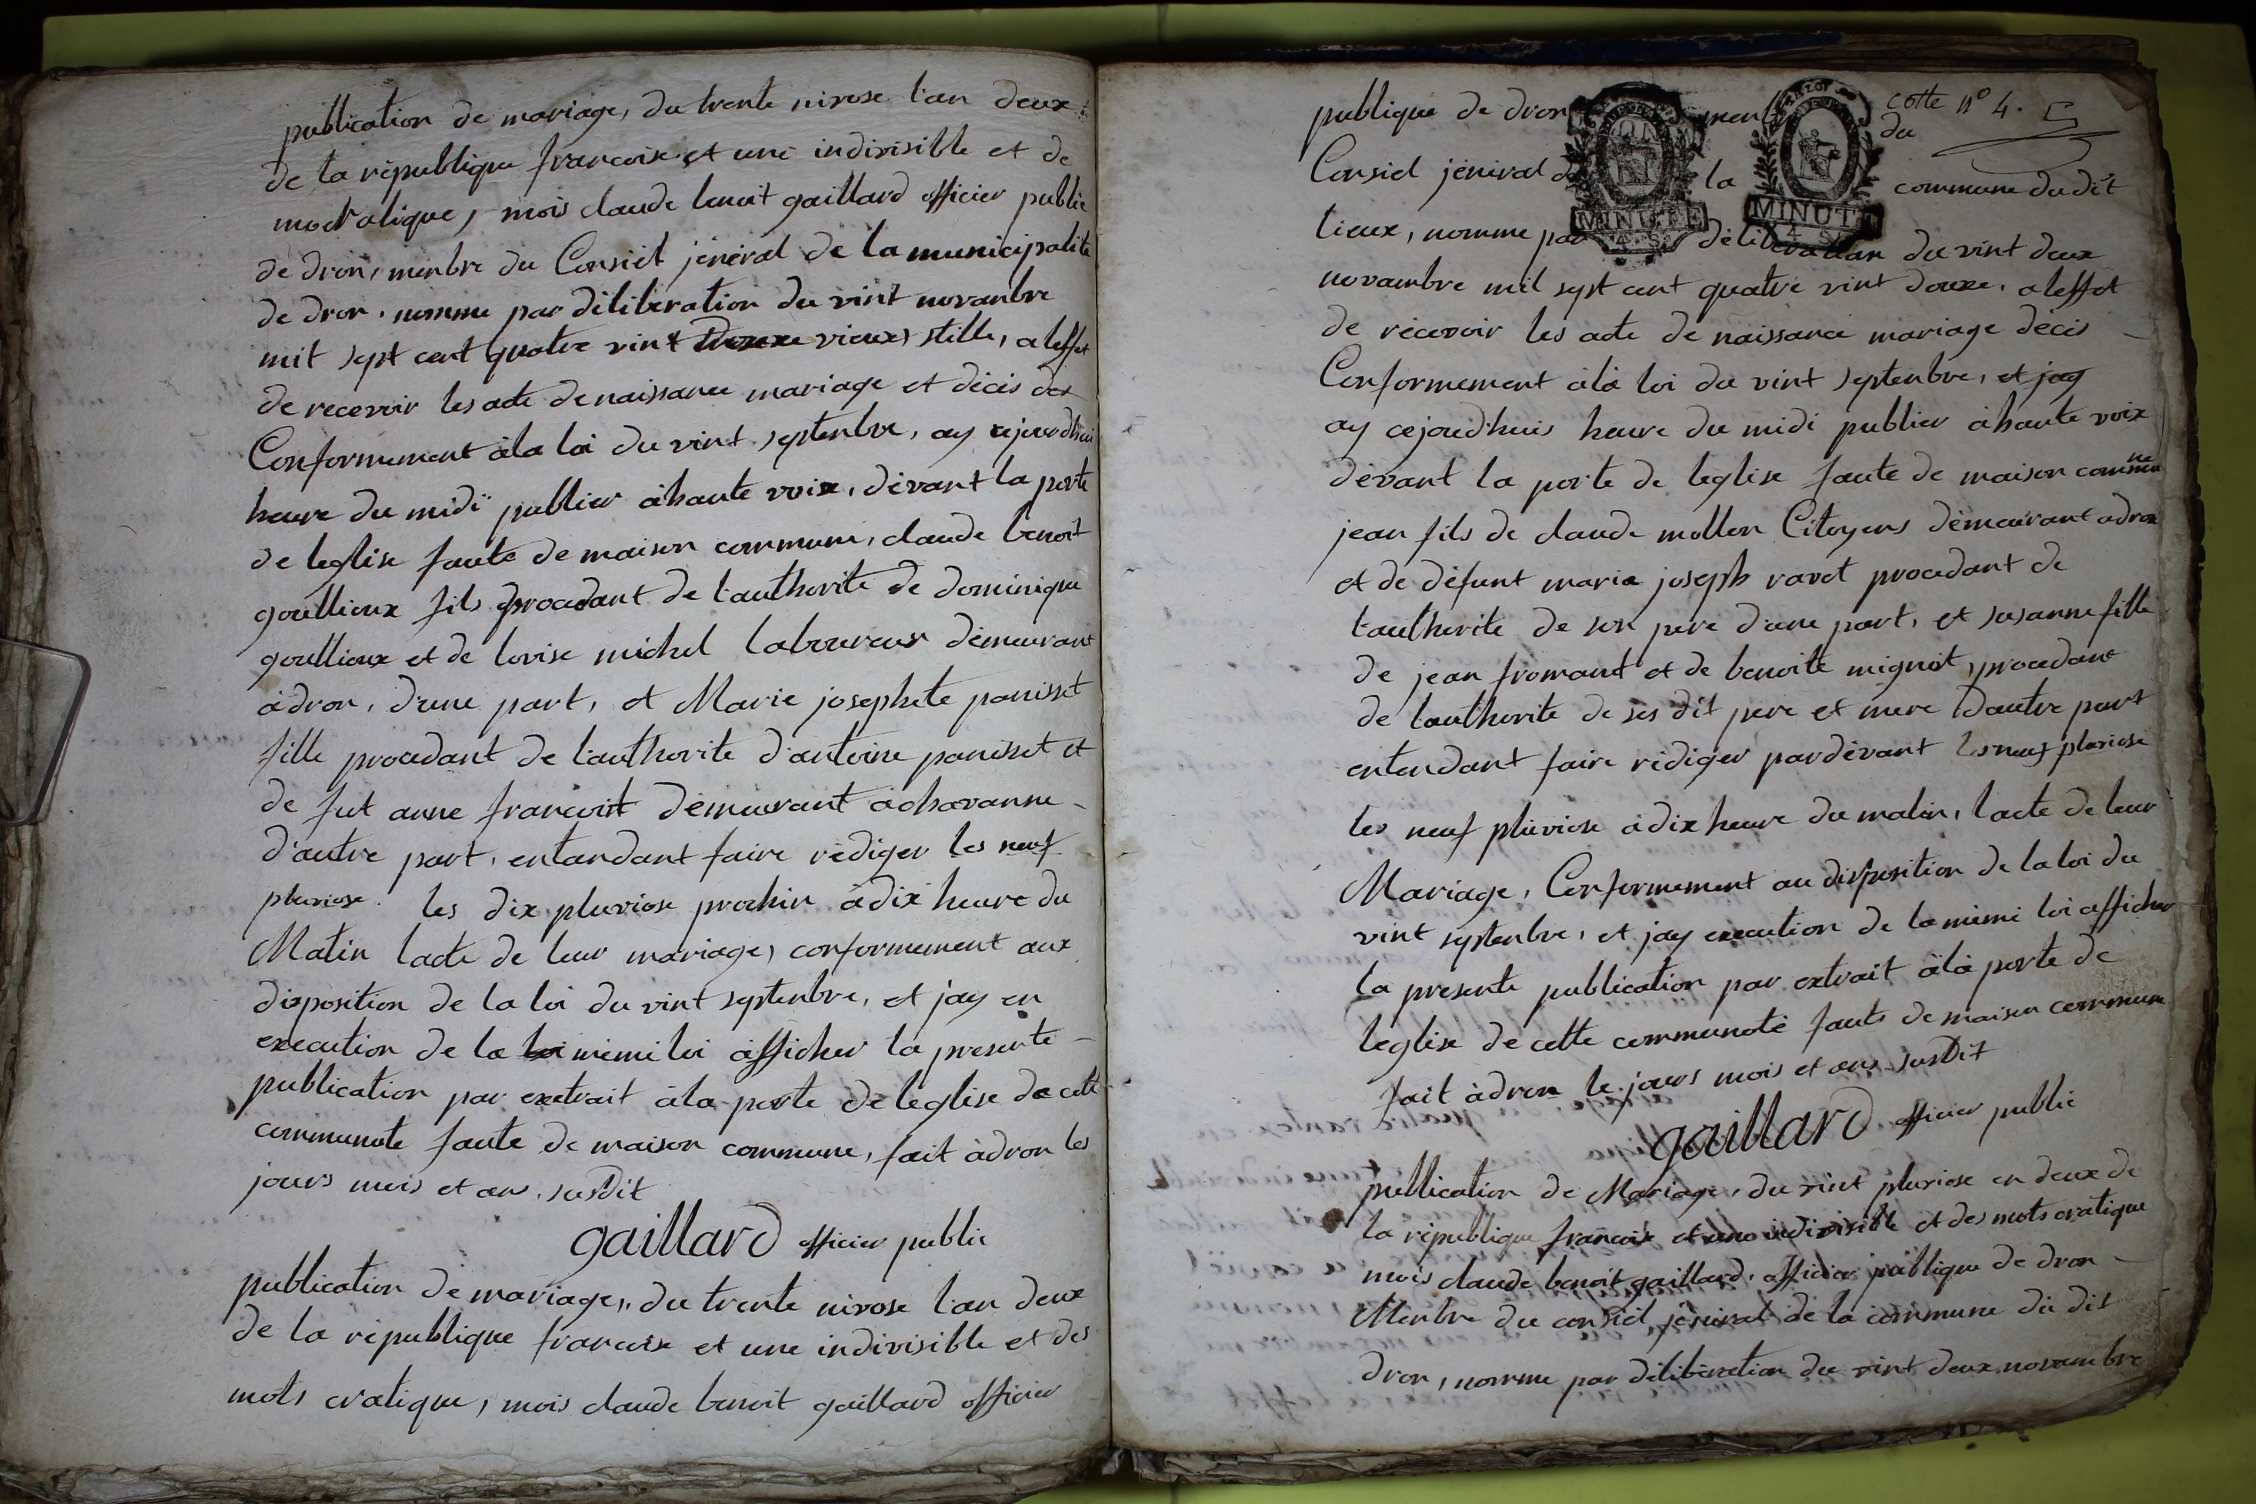 publication de mariage, du trente nivose l'an deux
de la république francoise et une indivisible et de
mocratique, mois claude benoit gaillard officier public
de dron, menbre du Consiel jénéral de la municipalite
de dron, nomme par déliberation du vint novanbre
mil sept cent quatre vint vieux stille, a leffet
de recevoir les acte de naissance mariage et décès des
Conformement àla loi du vint septenbre, ay cejourdhui
heure du midi publier àhaute voix, dévant la porte
de leglise faute de maison commune, claude benoit
goullioux fils procedant de l'authorite de dominique
goullioux et de lovise michel laboureur démeurant
àdron, d'une part, et Marie josephete panisset
fille procedant de l'authorite d'antoine panisset et
de fut anne francoit démeurant àchavanne
d'autre part, entandant faire rédiger les neuf
pluviose. les dix pluviose prochin àdix heure du
Matin lacte de leur mariage, conformement aux
disposition de la loi du vint septenbre, et jay en
execution de la loi mêmi loi àfficher la presente
publication par exetrait àla porte de leglise de cette
communote faute de maison commune, fait àdron les
jours mois et an susdit
gaillard officier public
publication de mariage, du trente nivose l'an deux
de la république francoise et une indivisible et des
mots cratique, mois claude benoit gaillard officier
cotte n° 4.
publique de dron du
Consiel jénéral la commune dudit
MINUTE
4 S.
MINUTE
4 S.
lieux, nomme par délibération du vint deux
novambre mil sept cent quatre vint douxe, a leffet
de récevoir les acte de naissance mariage décès
Conformement àla loi du vint septenbre, et jay
ay cejoud'huis heure du midi publier àhaute voix
dévant la porte de leglise faute de maison commune
jean fils de claude mollon Citoyens démeurant adron
et de défunt marie joseph ravet procedant de
l'authorite de son pere d'une part, et susanne fille
de jean fromant et de benoite mignot, procedant
de lauthorite de ses dit pere et mere d'autre part
entendant faire rédiger pardévant les neuf pluviose
les neuf pluviose àdix heure du matin, lacte de leur
Mariage, Conformement au disposition de la loi du
vint septenbre, et jay execution de la mêmi loi afficher
la presente publication par extrait àla porte de
leglise de cette communoté faute de maison commune
fait àdron le jours mois et ans susdit
gaillard officier public
publication de Mariage, du vint pluviose en deux de
la république francoise et une indivisible et des mots cratique
mois claude benoit gaillard, officier publique de dron
Menbre du consiel jénéral de la commune du dit
dron, nomme par délibération du vint deux novambre